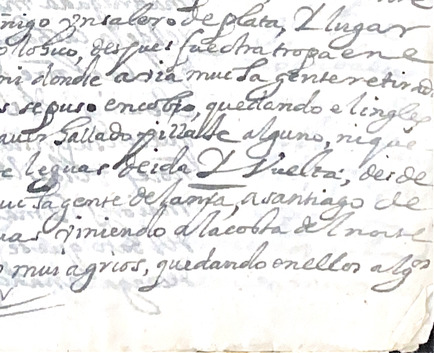 ñigo y un salero de plata, Y lugar
despues fue otra tropa en e
mi donde avia mucha gente retirad
s se puso en cobro, quedando el ingles
aver hallado pillaje alguno, ni que
e leguas de ida Y Vuelta, desde
gente de lanza, a santiago de
uas viniendo a la costa del norte
mui agrios, quedando en ellos algos